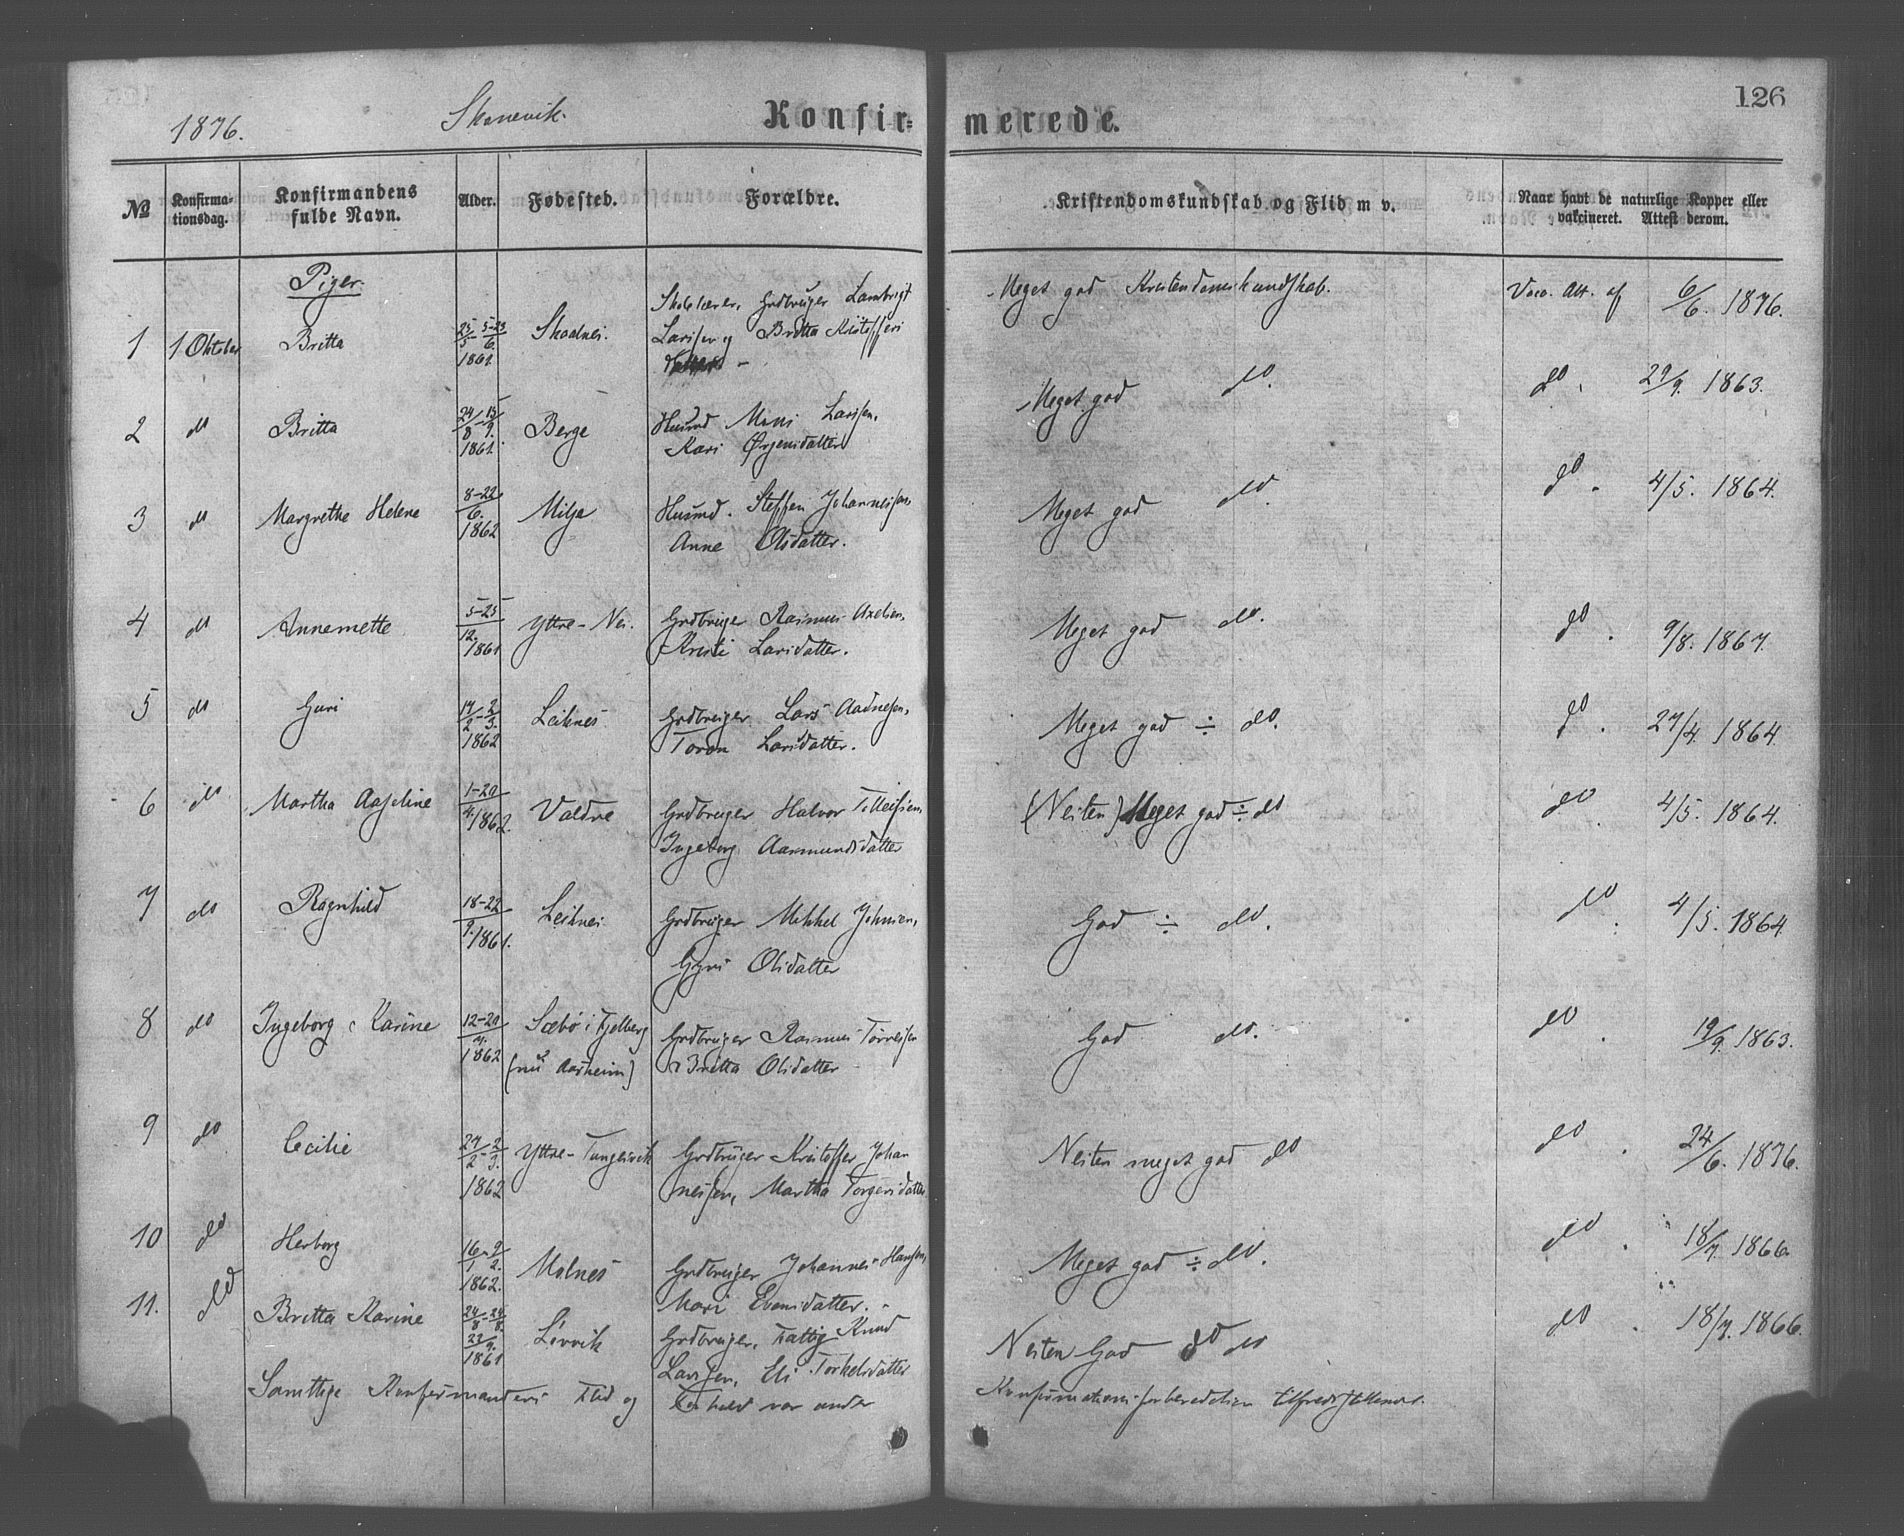 126
1876. Skonevik. Konfir= merede.
№ Konfirma-tionsdag. Konfirmandens fulde Navn. Alder. Fødested. Forældre. Kristendomskundskab og Flid m v. Naar havt de naturlige Kopper eller vakcineret. Attest derom.
Piger.
1 1 Oktober Britta 1861 Skolelærer, Grdbruger Lambrigt
Larsen og Britta Kristofferi
Meget god Kristendomskundskab. Vacc. Att. af 6/6. 1876.
2 do Britta 24/8-15/9. 1861. Berge Husmd Mons Larssen,
Kari Ørjensdatter
Meget god do. do. 29/9. 1863.
3 do Margrethe Helene 8-22/6. 1862 Milje Husmd. Steffen Johannessen,
Anne Olsdatter.
Meget god do. do. 4/5. 1864.
4 do Annemette 5-25/12. 1861 Yttre-Nes. Grdbruger Rasmus Axelsen,
Kristi Larsdatter.
Meget god do. do. 9/8. 1867.
5 do Guri 17/2-2/3. 1862 Leknes Grdbruger Lars Aadnesen,
Toron Larsdatter.
Meget god ÷ do. do. 27/4. 1864.
6 do Martha Aaseline 1-20/4. 1862. Valdre Grdbruger Halvor Tolleifsen,
Ingeborg Aasmundsdatter
(Neiten) Meget god ÷ do do. 4/5. 1864.
7 do Ragnhild 18-22/9. 1861. Leknes Grdbruger Mikkel Johnsen,
Gyri Olsdatter
God ÷ do. do. 4/5. 1864
8 do Ingeborg Karine 12-20/4. 1862 Sæbø i Fjelberg
(nu Aasheim)
Grdbruger Rasmus Torressen
Britta Olsdatter
God do. do. 19/9. 1863.
9 do Cecilie 24/2-2/3. 1862 Yttre-Tungesvik Grdbruger Kristoffer Johan
nessen, Martha Torgersdatter
Neiten meget god do do. 24/6. 1876.
10 do Herborg 16/1-9/2. 1862. Molnes Grdbruger Johannes Hansen,
Mari Evensdatter.
Meget god ÷ do. do. 18/7. 1866.
11. do Britta Karine 24/8-24/8. 23/9. 1861 Løvvik Grdbruger, Fattig Knud
Larssen, Eli Torkelsdatter
Neiten God do do do. 18/7. 1866.
Samtlige Konfirmanders Flid og Forhold var under Konfirmationsforberedelsen tilfredsstillende.